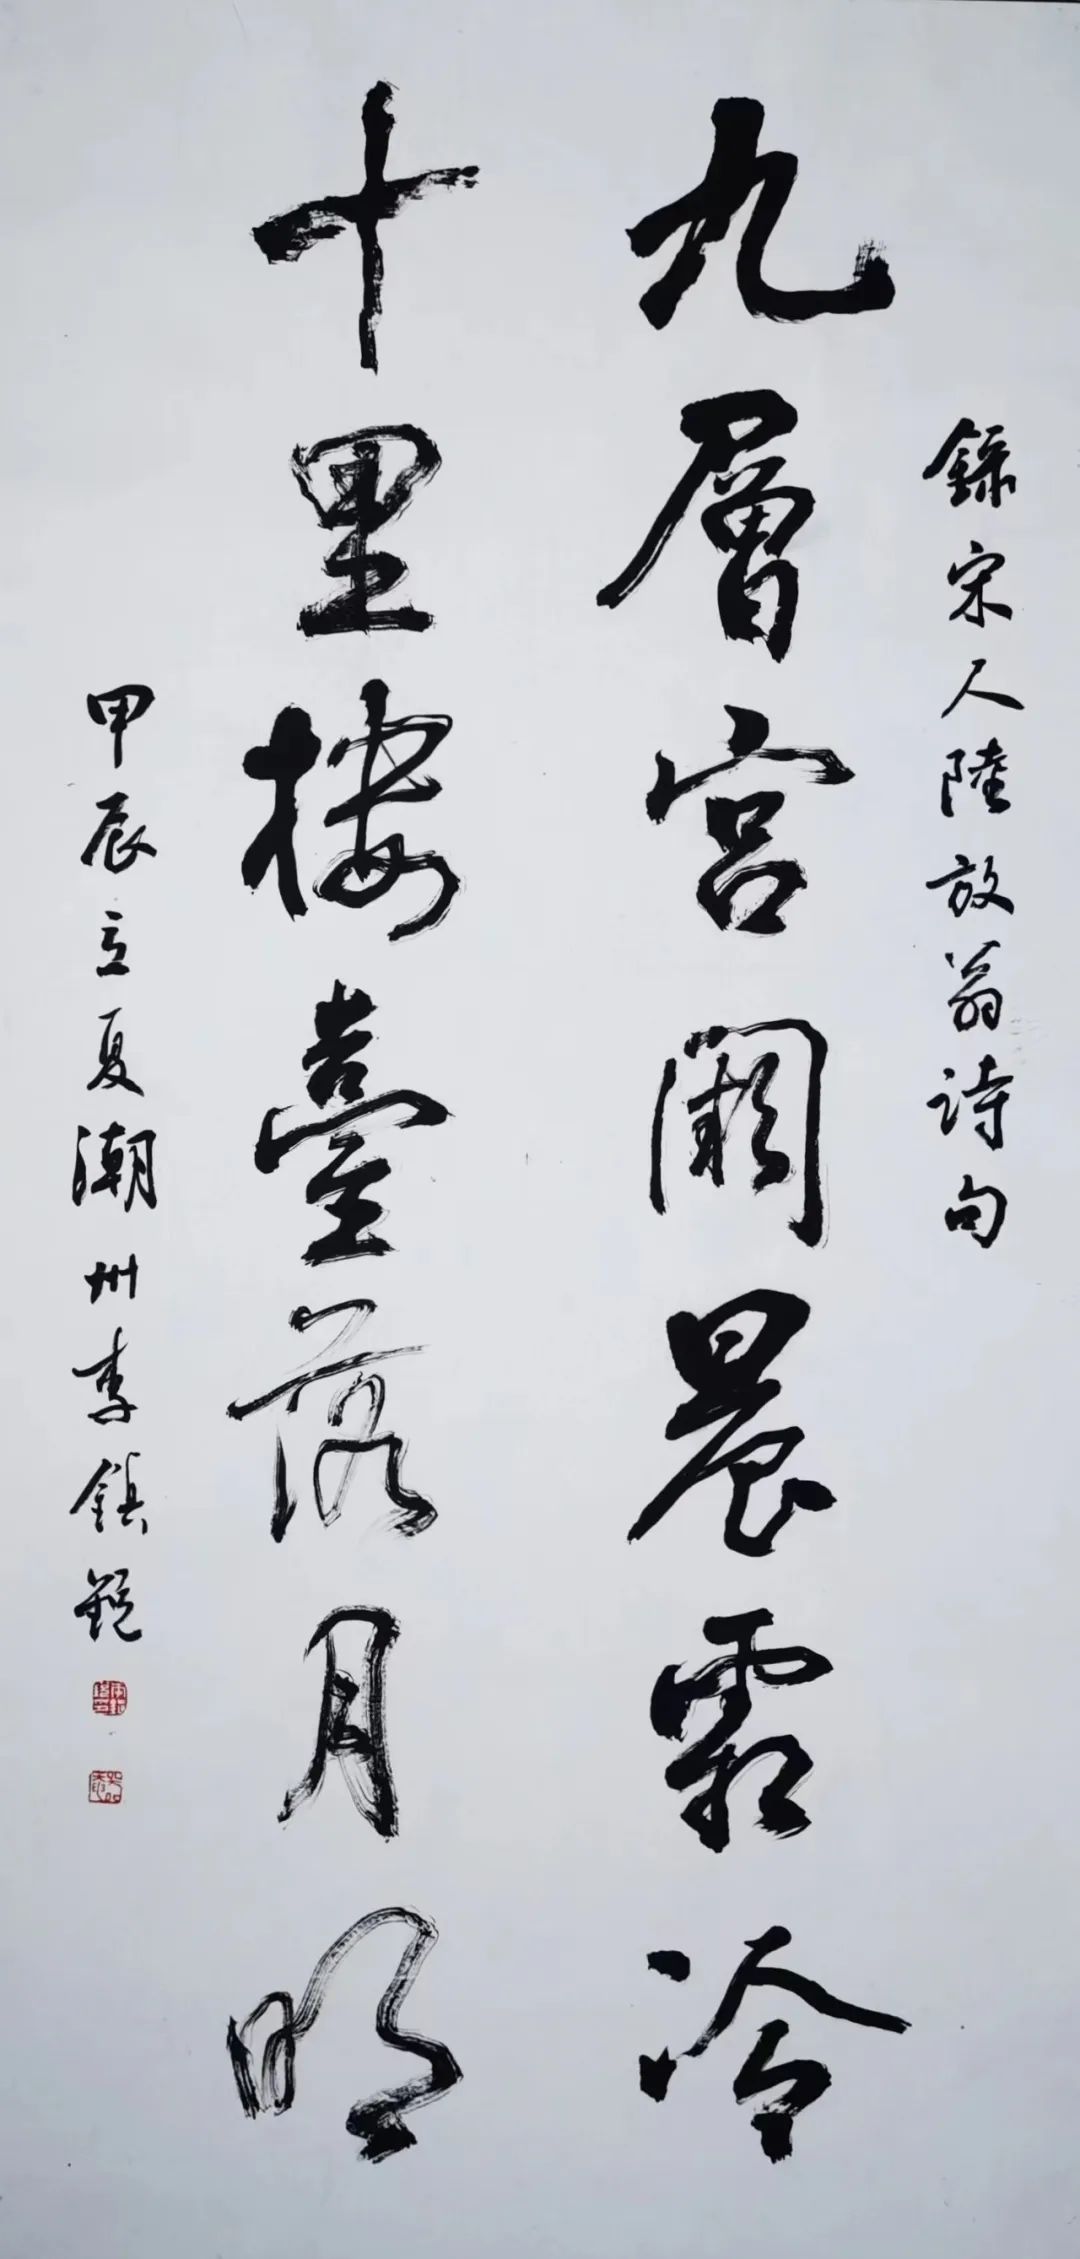 錄宋人陸放翁詩句
九層宮闕晨霜冷
十里樓臺落月明
甲辰立夏潮州李鎮鎧